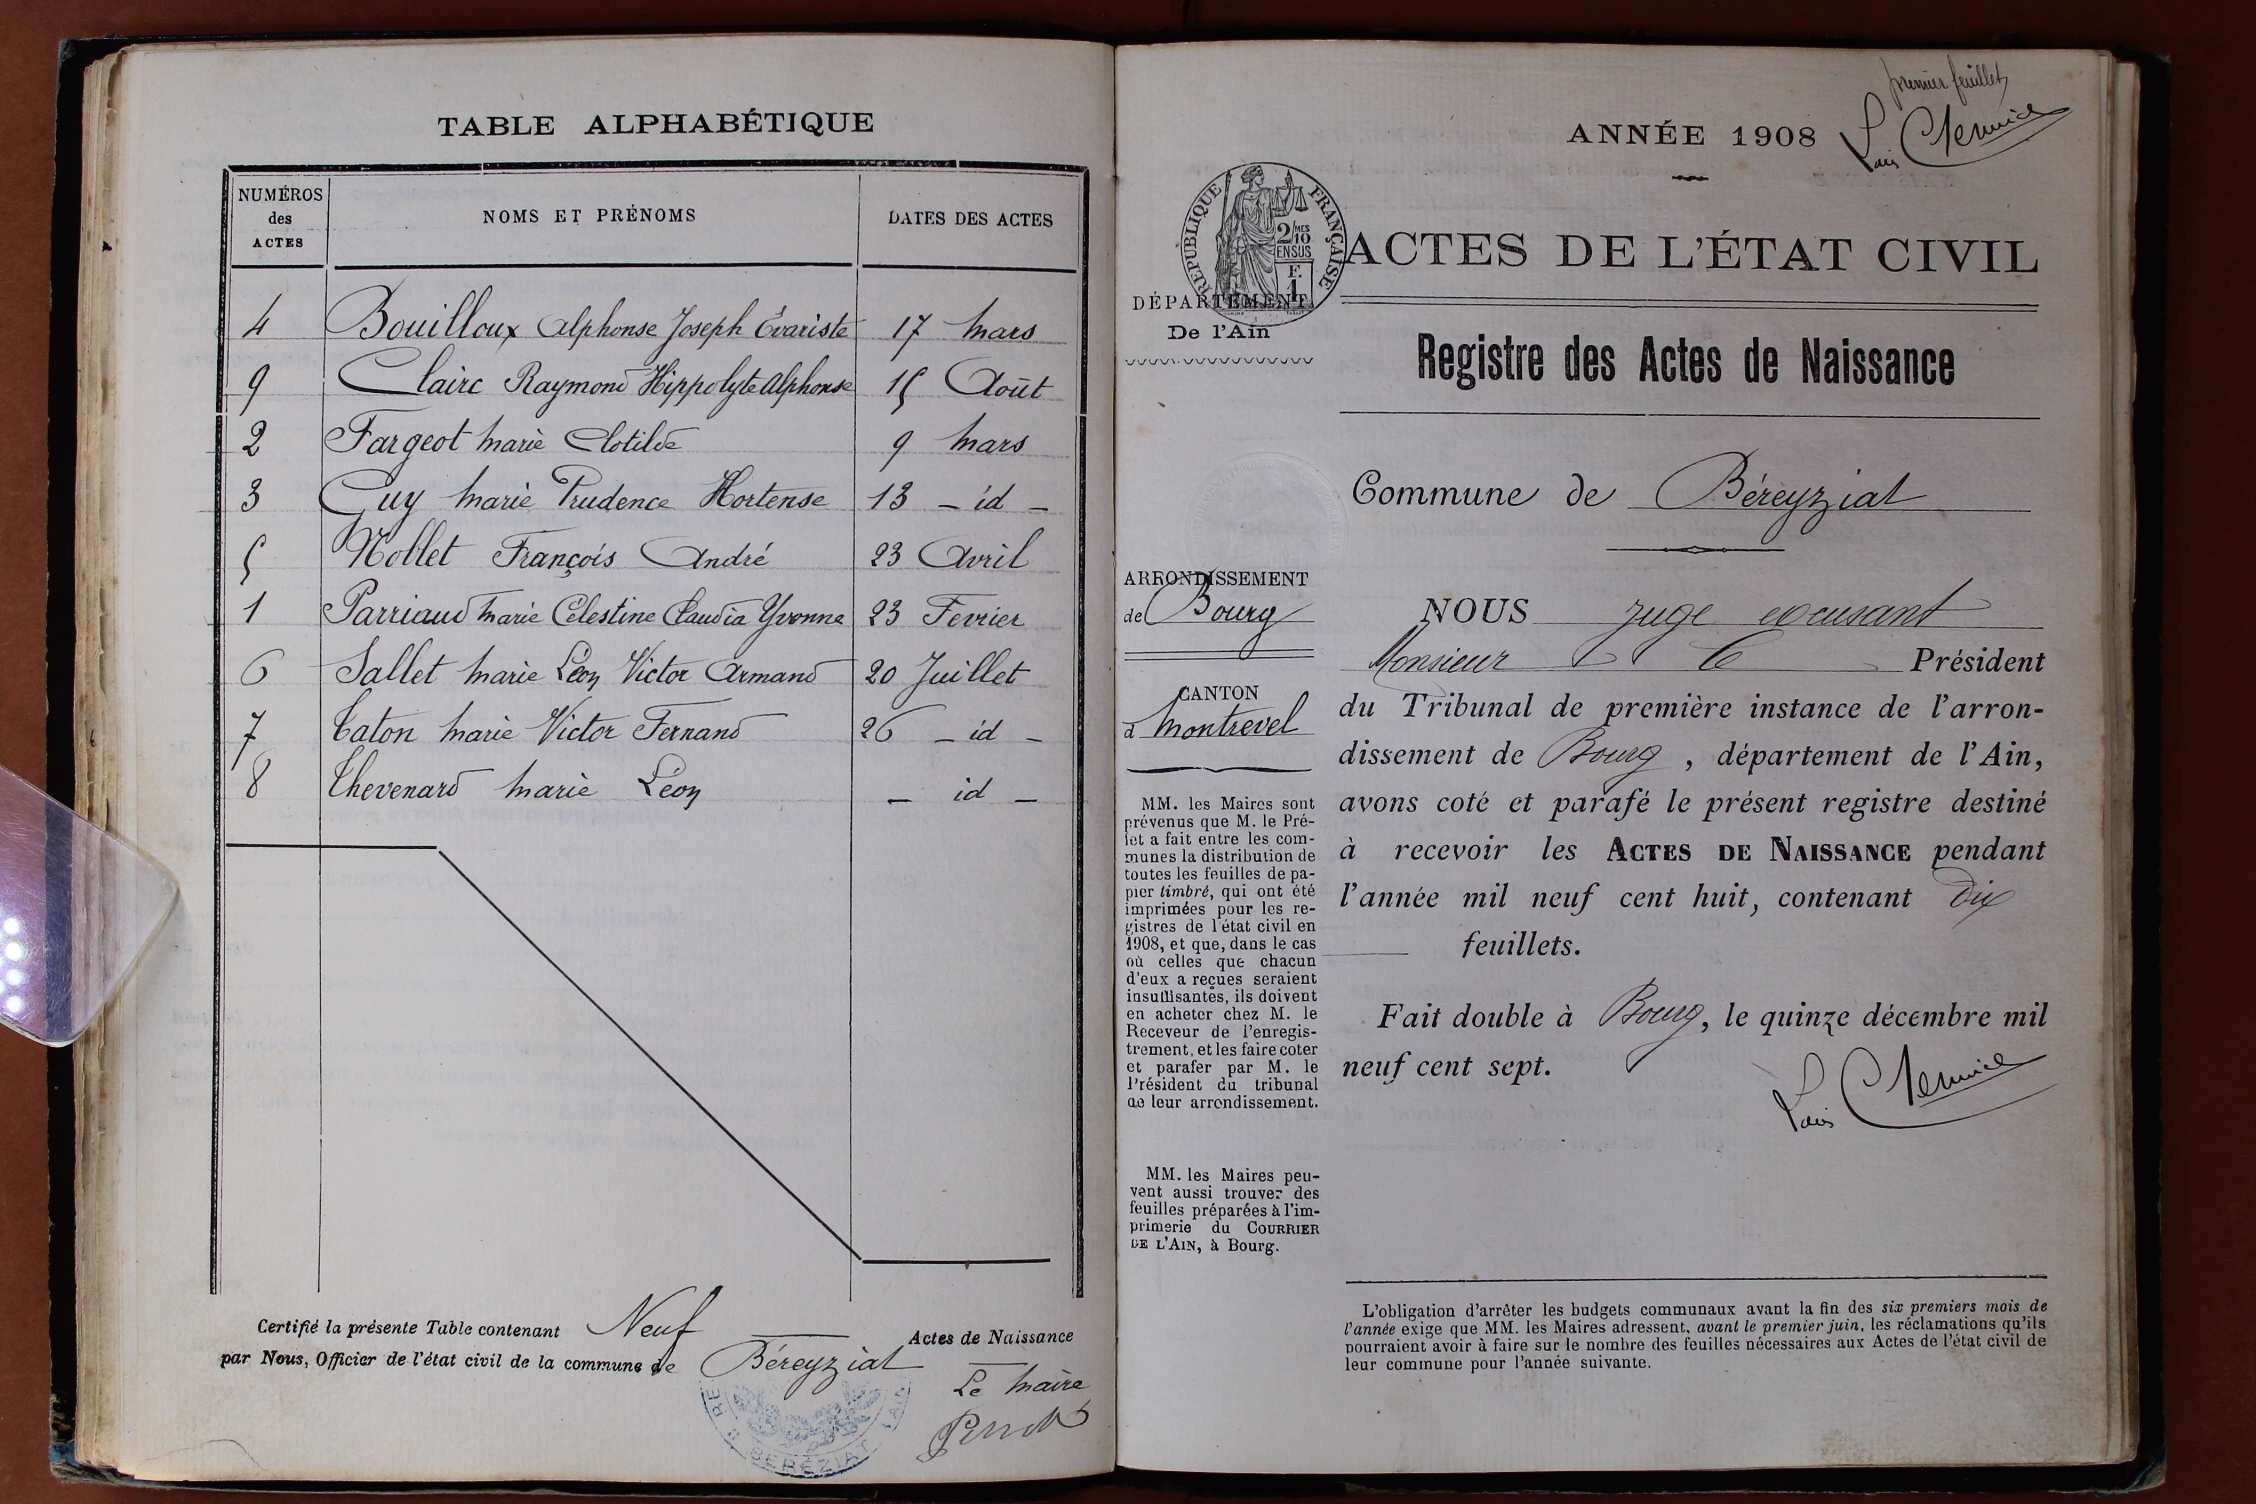 TABLE ALPHABÉTIQUE
NUMÉROS des ACTES
NOMS ET PRÉNOMS
DATES DES ACTES
4 Bouilloux Alphonse Joseph Évariste 17 mars
9 Clairc Raymond Hippolyte Alphonse 15 Août
2 Fargeot Marie Clotilde 9 mars
3 Guy Marie Prudence Hortense 13 - id -
5 Nollet François André 23 Avril
1 Parriaud Marie Célestine Claudia Yvonne 23 Fevrier
6 Sallet Marie Léon Victor Armand 20 Juillet
7 Caton Marie Victor Fernand 26 - id -
8 Chevenard Marie Léon - id -
Certifié la présente Table contenant Neuf Actes de Naissance
par Nous, Officier de l'état civil de la commune de Béreyziat
Le Maire
BEREZIAT
premier feuillet
ANNÉE 1908
RÉPUBLIQUE FRANÇAISE
2/10 MES
ENSUS
F.
1
ACTES DE L'ÉTAT CIVIL
DÉPARTEMENT
De l'Ain
Registre des Actes de Naissance
Commune de Béreyziat
ARRONDISSEMENT
de Bourg
CANTON
d Montrevel
MM. les Maires sont
prévenus que M. le Pré-
fet a fait entre les com-
munes la distribution de
toutes les feuilles de pa-
pier timbré, qui ont été
imprimées pour les re-
gistres de l'état civil en
1908, et que, dans le cas
où celles que chacun
d'eux a reçues seraient
insuffisantes, ils doivent
en acheter chez M. le
Receveur de l'enregis-
trement, et les faire coter
et parafer par M. le
Président du tribunal
de leur arrondissement.
MM. les Maires peu-
vent aussi trouver des
feuilles préparées à l'im-
primerie du COURRIER
DE L'AIN, à Bourg.
NOUS juge excusant
Monsieur le Président
du Tribunal de première instance de l'arron-
dissement de Bourg, département de l'Ain,
avons coté et parafé le présent registre destiné
à recevoir les ACTES DE NAISSANCE pendant
l'année mil neuf cent huit, contenant Dix
feuillets.
Fait double à Bourg, le quinze décembre mil
neuf cent sept.
L'obligation d'arrêter les budgets communaux avant la fin des six premiers mois de
l'année exige que MM. les Maires adressent, avant le premier juin, les réclamations qu'ils
pourraient avoir à faire sur le nombre des feuilles nécessaires aux Actes de l'état civil de
leur commune pour l'année suivante.